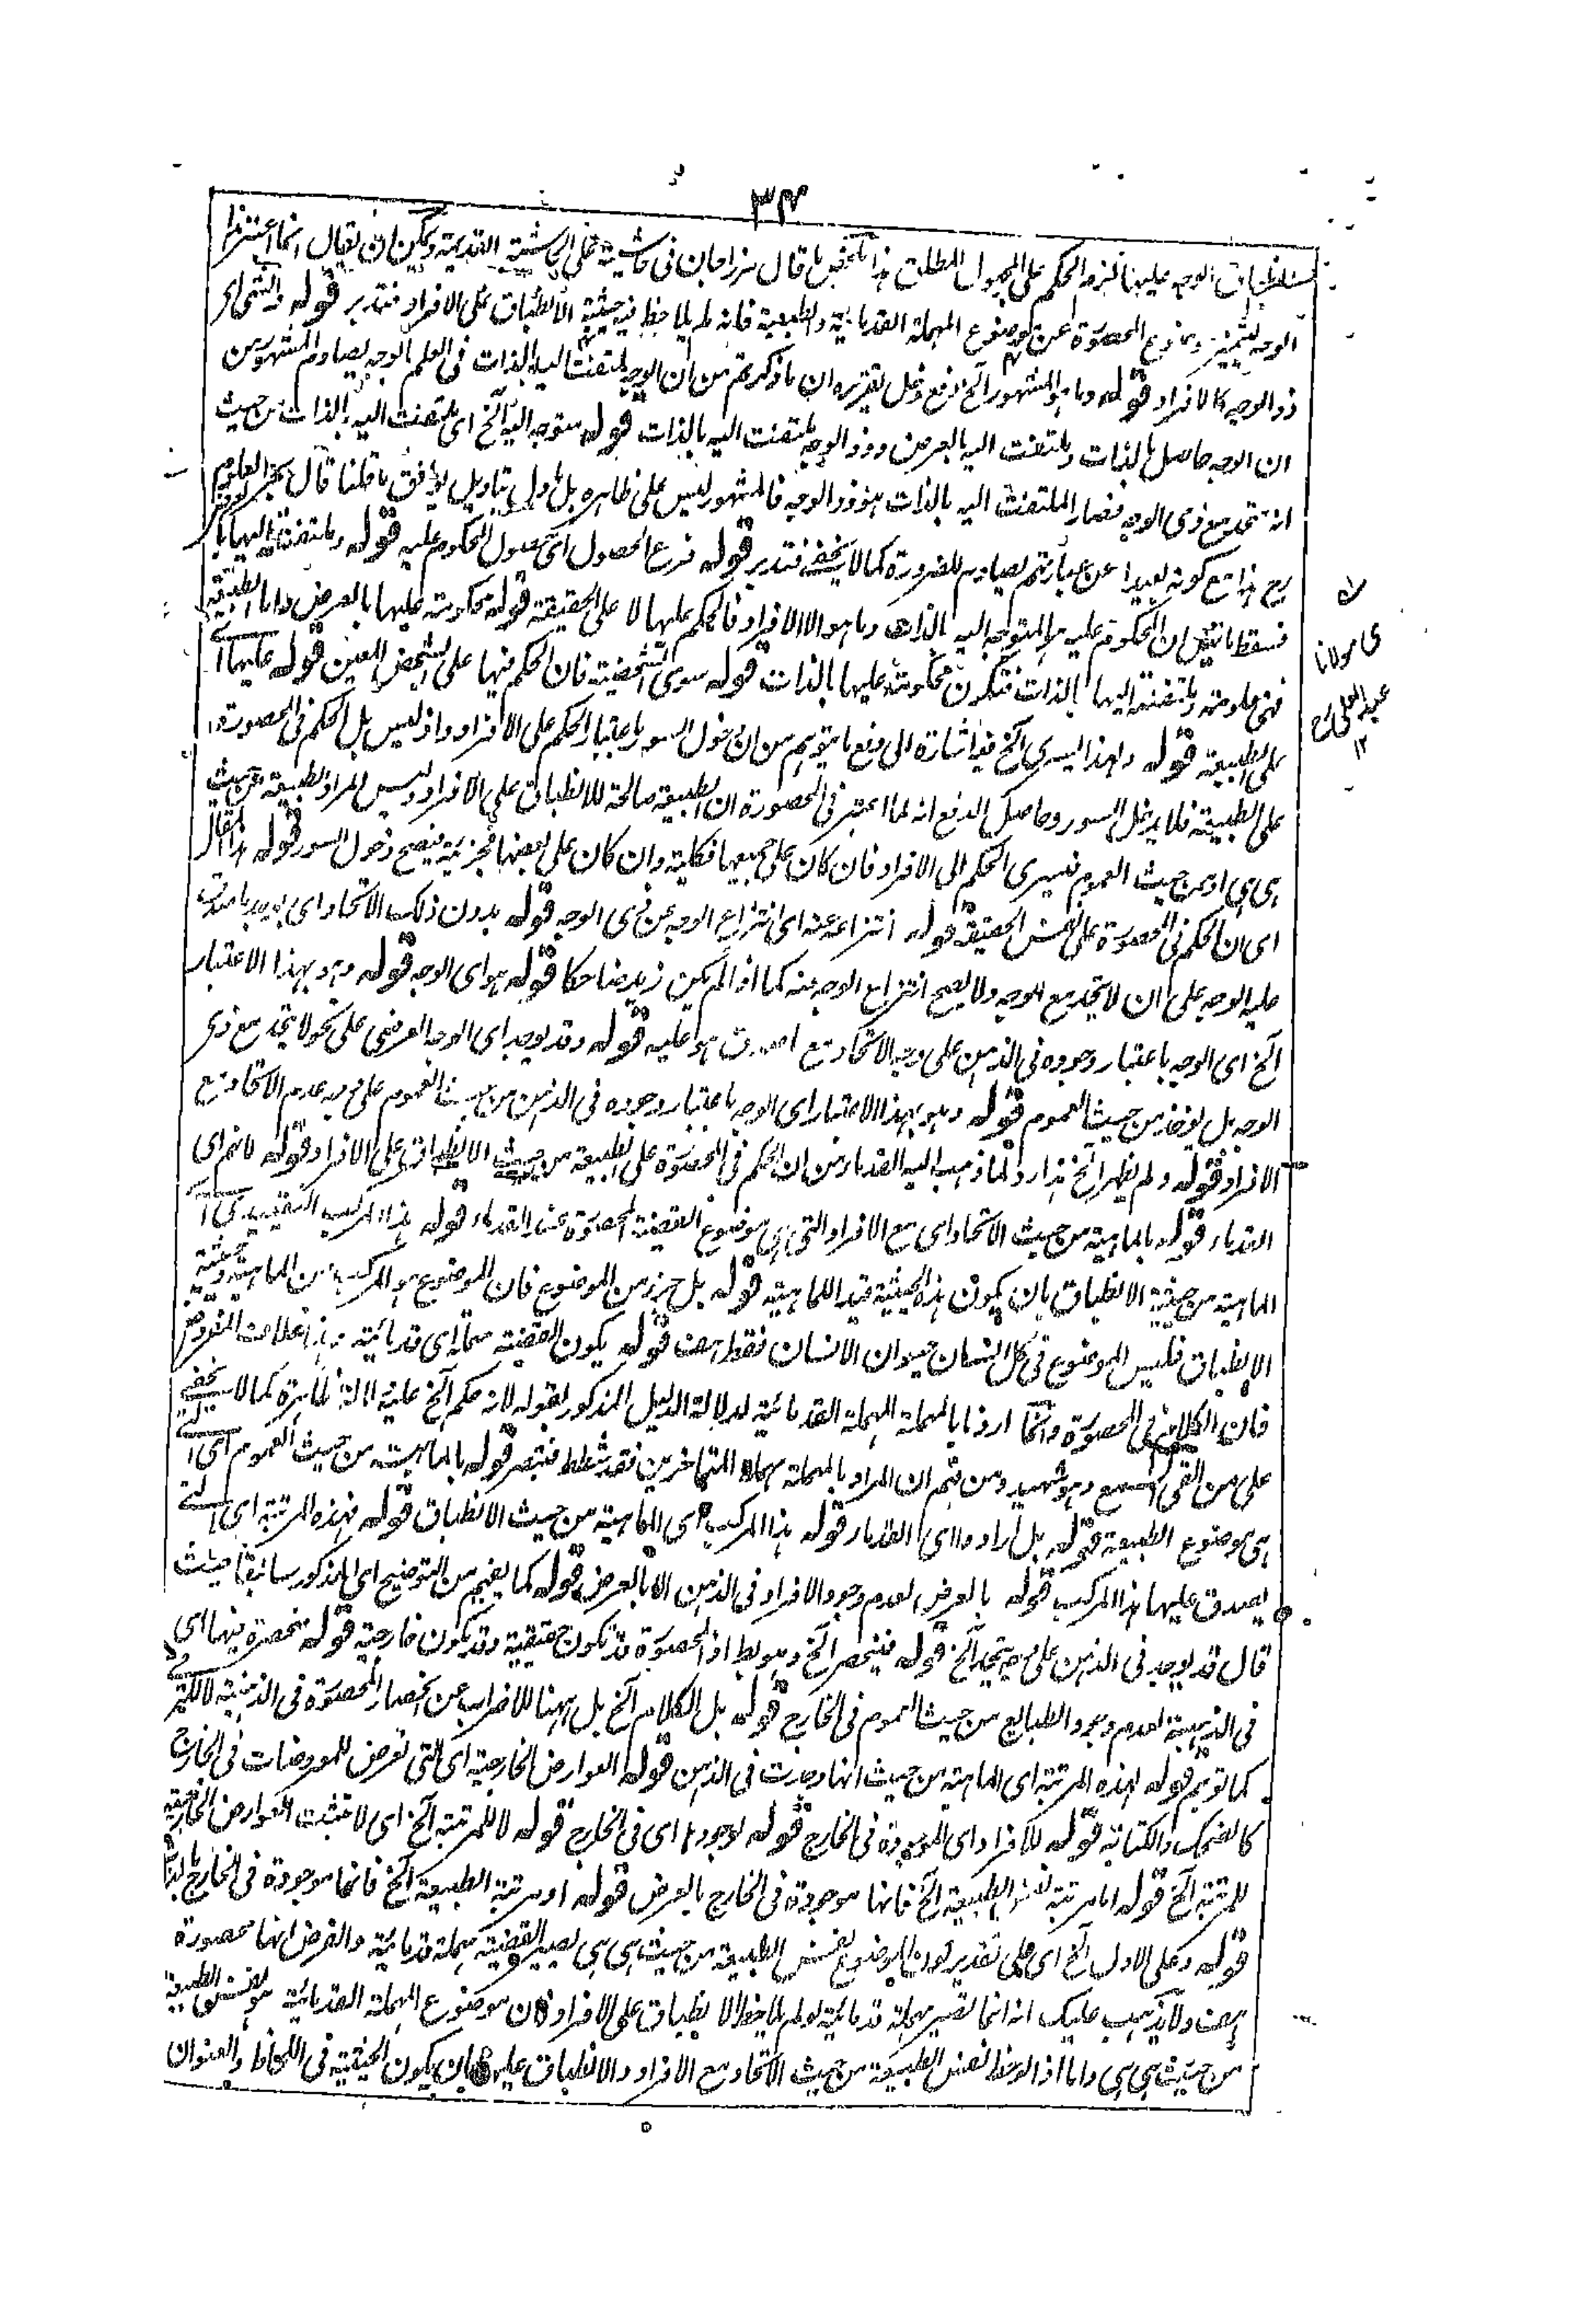 ٣٤
انطباق الوجه عليها لزم الحكم على المجهول المطلق هذا تلخيص ما قال مرزاجان فى حاشيته على الحاشية القديمة ويمكن ان يقال انما اعتبرنا
الوجه ليتميز موضوع المحصورة عن موضوع المهملة القدمائية والطبيعية فانه لم يلاحظ فيه حيثية الانطباق على الافراد فتدبر قوله والشئ اى
ذو الوجه كالافراد قوله وما هو المشهور الخ دفع دخل تقريره ان ما ذكرتم من ان الوجه ملتفت اليه بالذات فى العلم بالوجه يصادم المشهور من
ان الوجه حاصل بالذات وملتفت اليه بالعرض وذو الوجه ملتفت اليه بالذات قوله متوجه اليه الخ اى ملتفت اليه بالذات من حيث
انه متحد مع ذى الوجه فصار الملتفت اليه بالذات هو ذو الوجه فالمشهور ليس على ظاهره بل ماول بتاويل يوافق ما قلنا قال بحر العلوم
رح هذا مع كونه بعيدا عن عبارتهم يصادم للضرورة كما لا يخفى فتدبر قوله فرع الحصول اى حصول المحكوم عليه قوله وملتفتة اليها
فسقط ما قيل ان المحكوم عليه هو المتوجه اليه بالذات وما هو الا الافراد فالحكم عليها لا على الحقيقة قوله محكومة عليها بالعرض واما الطبيعة
فهى معلومة وملتفتة اليها بالذات فتكون محكومة عليها بالذات قوله سوى الشخصية فان الحكم فيها على الشخص المعين قوله عليها اى
على الطبيعة قوله ولهذا يسرى الخ فيه اشارة الى دفع ما يتوهم من ان دخول السور باعتبار الحكم على الافراد واذ ليس بل الحكم فى المحصورة
على الطبيعة فلا يدخل السور وحاصل الدفع انه لما اعتبر فى المحصورة ان الطبيعة صالحة للانطباق على الافراد وليس المراد الطبيعة من حيث
هى هى او من حيث العموم فيسرى الحكم الى الافراد فان كان على جميعها فكلية وان كان على بعضها فجزئية فيصح دخول السور قوله هذا
اى ان الحكم فى المحصورة على نفس الحقيقة قوله انتزاعه عنه اى انتزاع الوجه عن ذى الوجه قوله بدون ذلك الاتحاد اى
عليه الوجه على ان لا يتحد مع الوجه ولا يصح انتزاع الوجه عنه كما اذا لم يكن زيد ضاحكا قوله هو اى الوجه قوله وهو بهذا الاعتبار
الخ اى الوجه باعتبار وجوده فى الذهن على وجه الاتحاد مع ما صدق هو عليه قوله وقد يوجد اى الوجه العرضى على نحو لا يتحد مع ذى
الوجه بل يوخذ من حيث العموم قوله وهو بهذا الاعتبار اى الوجه باعتبار وجوده فى الذهن من حيث العموم على وجه عدم الاتحاد مع
الافراد قوله ولم يظهر الخ هذا رد لما ذهب اليه القدماء من ان الحكم فى المحصورة على الطبيعة من حيث الانطباق على الافراد قوله لانهم اى
القدماء قوله بالماهية من حيث الاتحاد اى مع الافراد التى هى موضوع القضية المحصورة عند القدماء قوله هذا المركب التقييدى اى
الماهية من حيثية الانطباق بان يكون هذه الحيثية قيد اللماهية قوله بل جزء من الموضوع فان الموضوع هو المركب من الماهية وحيثية
الانطباق فليس الموضوع فى كل انسان حيوان الانسان فقط هف قوله يكون القضية مهملة اى قدمائية هذا خلاف المفروض
فان الكلام فى المحصورة وانما اردنا بالمهملة المهملة القدمائية لدلالة الدليل المذكور بقوله لان حكم الخ عليه دلالة ظاهرة كما لا يخفى
على من القى السمع وهو شهيد ومن فهم ان المراد بالمهملة مهملة المتاخرين فقد شطط فتبصر قوله بالماهية من حيث العموم اى التى
هى موضوع الطبيعة قوله بل ارادوا اى القدماء قوله هذا المركب اى الماهية من حيث الانطباق قوله فهذه المرتبة اى التى
يصدق عليها هذا المركب قوله بالعرض لعدم وجود الافراد فى الذهن الا بالعرض قوله كما يفهم من التوضيح اى المذكور سابقا حيث
قال قد يوجد فى الذهن على وجه يتحد الخ قوله فينحصر الخ وهو بط اذ المحصورة قد تكون حقيقية وقد يكون خارجية قوله منحصرة فيها اى
فى الذهنية لعدم وجود الطبائع من حيث العموم فى الخارج قوله بل الكلام الخ بل ههنا للاضراب عن انحصار المحصورة فى الذهنية لا للترقى
كما توهم قوله لهذه المرتبة اى الماهية من حيث انها وجدت فى الذهن قوله العوارض الخارجية اى التى تعرض للمعروضات فى الخارج
كالضحك والكتابة قوله للافراد اى الموجودة فى الخارج قوله لوجودها اى فى الخارج قوله لا للمرتبة الخ اى لا تثبت العوارض الخارجية
للمرتبة الخ قوله اما مرتبة نفس الطبيعة الخ فانها موجودة فى الخارج بالعرض قوله او مرتبة الطبيعة الخ فانها موجودة فى الخارج بالذات
قوله وعلى الاول الخ اى على تقدير كون الموضوع نفس الطبيعة من حيث هى هى يصير القضية مهملة قدمائية والفرض انها محصورة
هف ولا يذهب عليك انه انما تصير مهملة قدمائية لو لم يلاحظ الانطباق على الافراد فان موضوع المهملة القدمائية هو نفس الطبيعة
من حيث هى هى واما اذا لوحظ نفس الطبيعة من حيث الاتحاد مع الافراد والانطباق عليها بان يكون الحيثية فى اللحاظ والعنوان
ى مولانا
عبد العلى رح
١٢